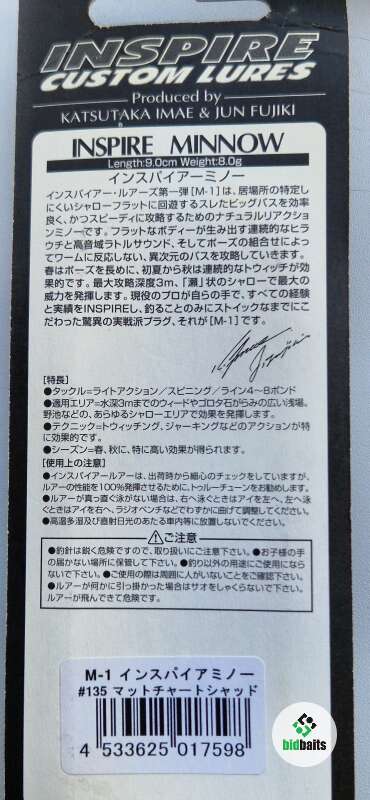 INSPIRE
CUSTOM LURES
Produced by
KATSUTAKA IMAE & JUN FUJIKI
INSPIRE MINNOW
Length:9.0cm Weight:8.0g
インスパイアーミノー
インスパイアー・ルアーズ第一弾[M-1]は、居場所の特定し
にくいシャローフラットに回遊するスレたビッグバスを効率
良く、かつスピーディに攻略するためのナチュラルリアクショ
ンミノーです。フラットなボディーが生み出す連続的なヒラ
ウチと高音域ラトルサウンド、そしてポーズの組合せによっ
てワームに反応しない、異次元のバスを攻略していきます。
春はポーズを長めに、初夏から秋は連続的なトゥイッチが効
果的です。最大攻略深度3m、「瀬」状のシャローで最大の
威力を発揮します。現役のプロが自らの手で、すべての経験
と実績をINSPIREし、釣ることのみにストイックなまでにこ
だわった驚異の実戦派プラグ、それが[M-1]です。
[特長]
●タックル=ライトアクション/スピニング/ライン4〜8ポンド
●適用エリア=水深3mまでのウィードやゴロタ石がらみの広い浅場、
野池などの、あらゆるシャローエリアで効果を発揮します。
●テクニック=トウィッチング、ジャーキングなどのアクションが特
に効果的です。
●シーズン=春、秋に、特に高い効果が得られます。
[使用上の注意]
●インスパイアールアーは、出荷時から細心のチェックをしていますが、
ルアーの性能を100%発揮させるために、トゥルーチューンをお勧めします。
●ルアーが真っ直ぐ泳がない場合は、右へ泳ぐときはアイを左へ、左へ泳
ぐときはアイを右へ、ラジオペンチなどでわずかに曲げて調整してください。
●高温多湿及び直射日光のあたる車内等に放置しないでください。
⚠ご注意
●釣針は鋭く危険ですので、取り扱いにご注意下さい。●お子様の手
の届かない場所に保管して下さい。●釣り以外の用途にご使用になら
ないで下さい。●ご使用の際は周囲に人がいないことをご確認下さい。
●ルアーが何かに引っ掛かった場合はサオをしゃくらないで下さい。
ルアーが飛んできて危険です。
M-1 インスパイアミノー
#135 マットチャートシャッド
4 533625 017598
bidbaits